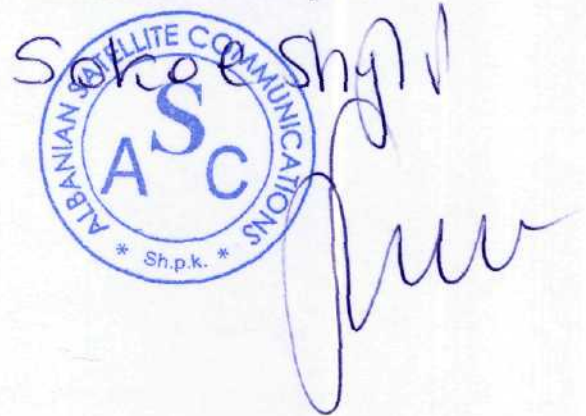 Sokol Shyti
ALBANIAN SATELLITE COMMUNICATIONS
S
A C
* Sh.p.k. *